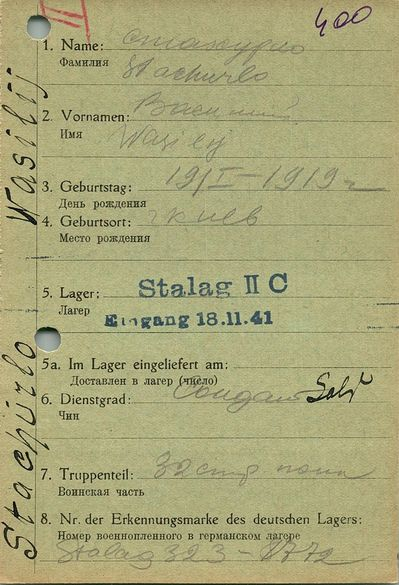 II
400
1. Name:
Фамилия
Stachurlo
2. Vornamen: Василий
Имя
Wasily
3. Geburtstag: 19/I - 1919 г
День рождения
4. Geburtsort: г Киев
Место рождения
5. Lager: Stalag II C
Лагер
Eingang 18.11.41
5a. Im Lager eingeliefert am:
Доставлен в лагер (число)
6. Dienstgrad: Солдат Sold.
Чин
7. Truppenteil: 32 стр полк
Воинская часть
8. Nr. der Erkennungsmarke des deutschen Lagers:
Номер военнопленного в германском лагере
Stalag 323 -
Stachurlo Wasilij